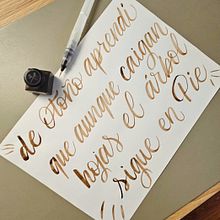 de otoño aprendí
que aunque caigan
hojas el árbol
sigue en Pie